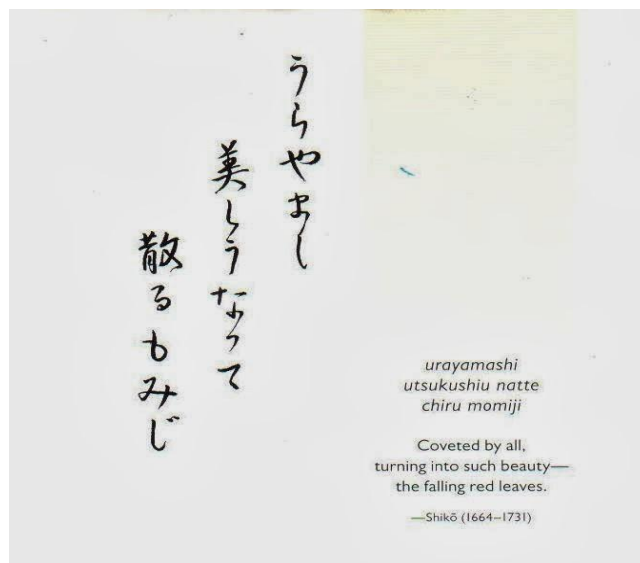 うらやまし
美しうなって
散るもみじ
urayamashi
utsukushiu natte
chiru momiji
Coveted by all,
turning into such beauty—
the falling red leaves.
—Shikō (1664–1731)